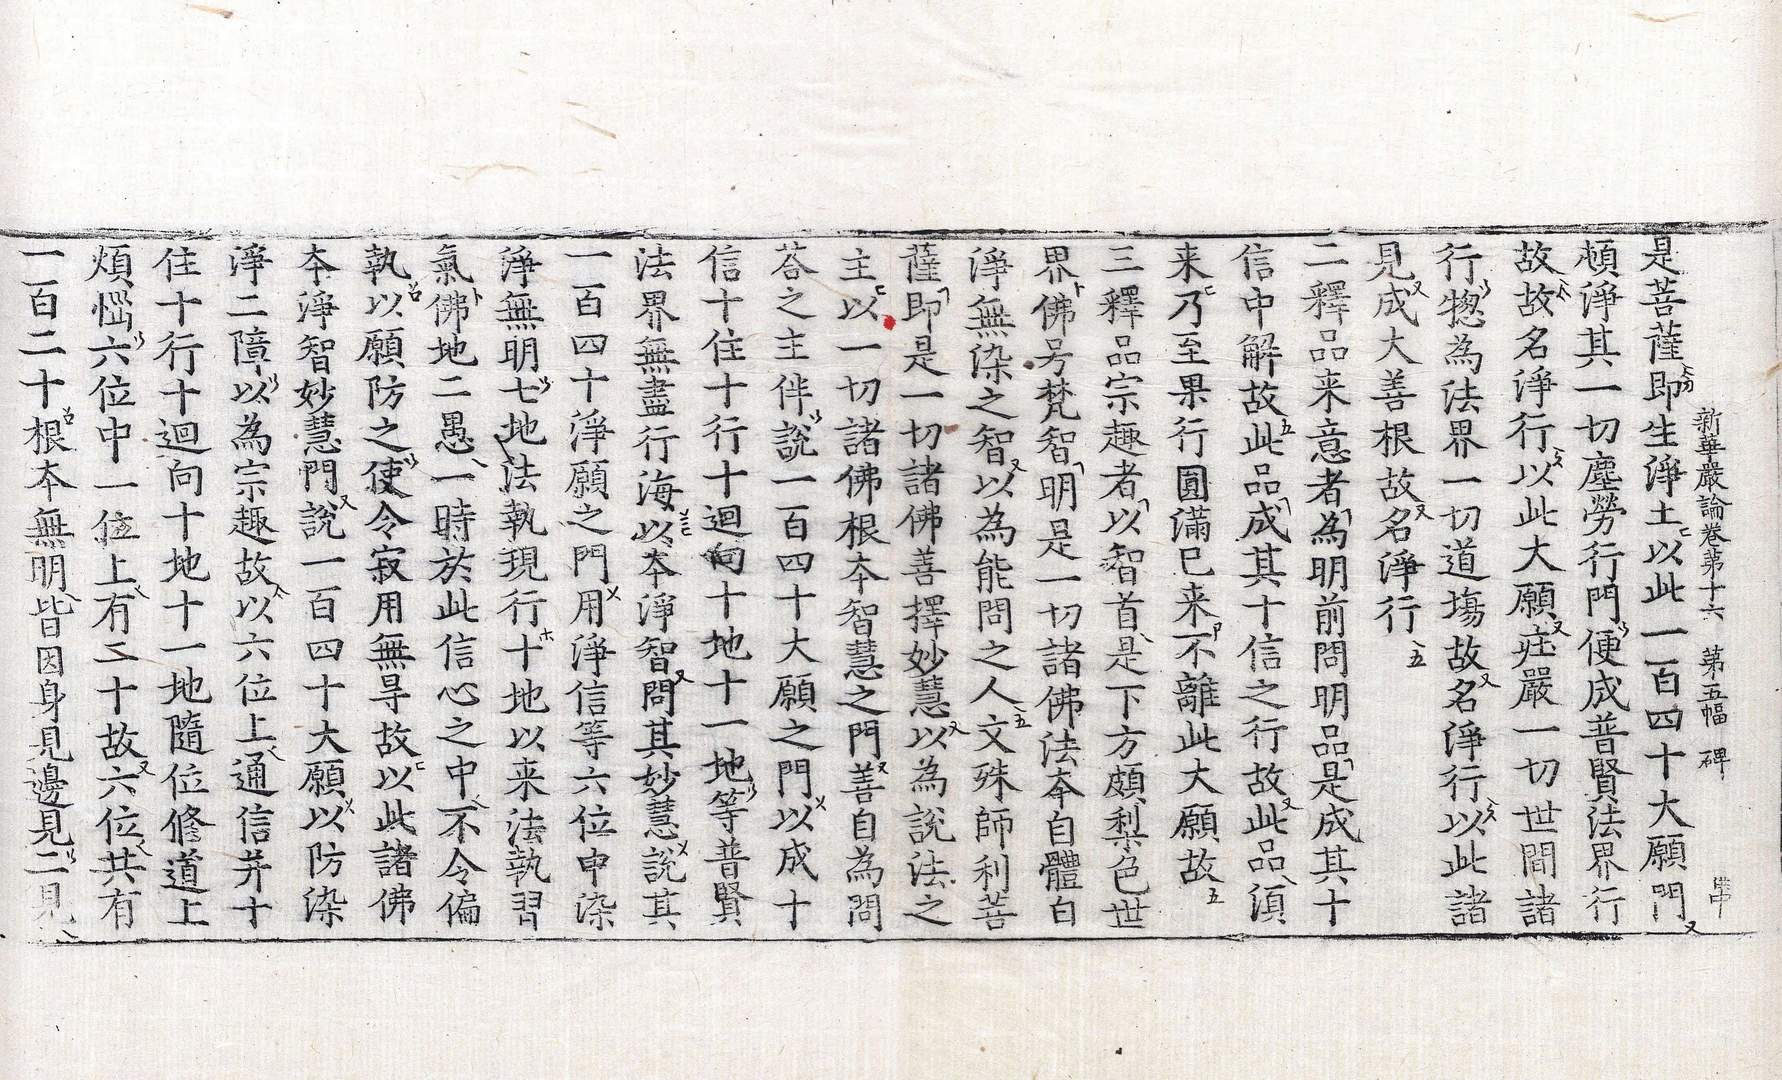 新華嚴論卷苐十六　苐五幅　碑
是菩薩即生淨土以此一百四十大願門
頓淨其一切塵勞行門便成普賢法界行
故故名淨行以此大願庄嚴一切世間諸
行揔為法界一切道塲故名淨行以此諸
見成大善根故名淨行
二釋品来意者為明前問明品是成其十
信中解故此品成其十信之行故此品湏
来乃至果行圓滿已来不離此大願故
三釋品宗趣者以智首是下方頗梨色世
界佛号梵智明是一切諸佛法夲自體白
淨無染之智以為能問之人文殊師利菩
薩即是一切諸佛善擇妙慧以為說法之
主以一切諸佛根夲智慧之門善自為問
荅之主伴說一百四十大願之門以成十
信十住十行十迴向十地十一地等普賢
法界無盡行海以夲淨智問其妙慧說其
一百四十淨願之門用淨信等六位中染
淨無明七地法執現行十地以来法執習
氣佛地二愚一時於此信心之中不令偏
執以願防之使令寂用無㝵故以此諸佛
夲淨智妙慧門說一百四十大願以防染
淨二障以為宗趣故以六位上通信并十
住十行十迴向十地十一地隨位修道上
煩惱六位中一位上有二十故六位共有
一百二十根夲無明皆因身見邊見二見